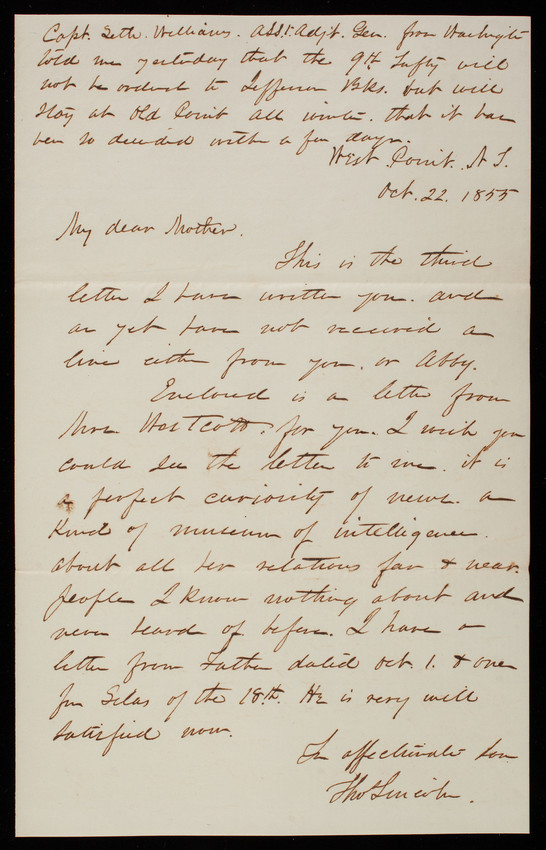 Capt. Seth. Williams. Asst. Adjt. Gen. from Washingtn
told me yesterday that the 9th Infty will
not be ordered to Jefferson Bks. but will
stay at Old Point all winter. that it has
been so decided within a few days.
West Point. N. Y.
Oct. 22. 1855
My dear Mother.
This is the third
letter I have written you. and
as yet have not received a
line either from you. or Abby.
Enclosed is a letter from
Mrs Westcott. for you. I wish you
could see the letter to me. it is
a perfect curiosity of news. a
kind of museum of intelligence.
about all her relations far & near.
people I know nothing about and
never heard of before. I have a
letter from Father dated Oct. 1. & one
from Silas of the 18th. He is very well
satisfied now.
Yr affectionate son
Thos Lincoln.